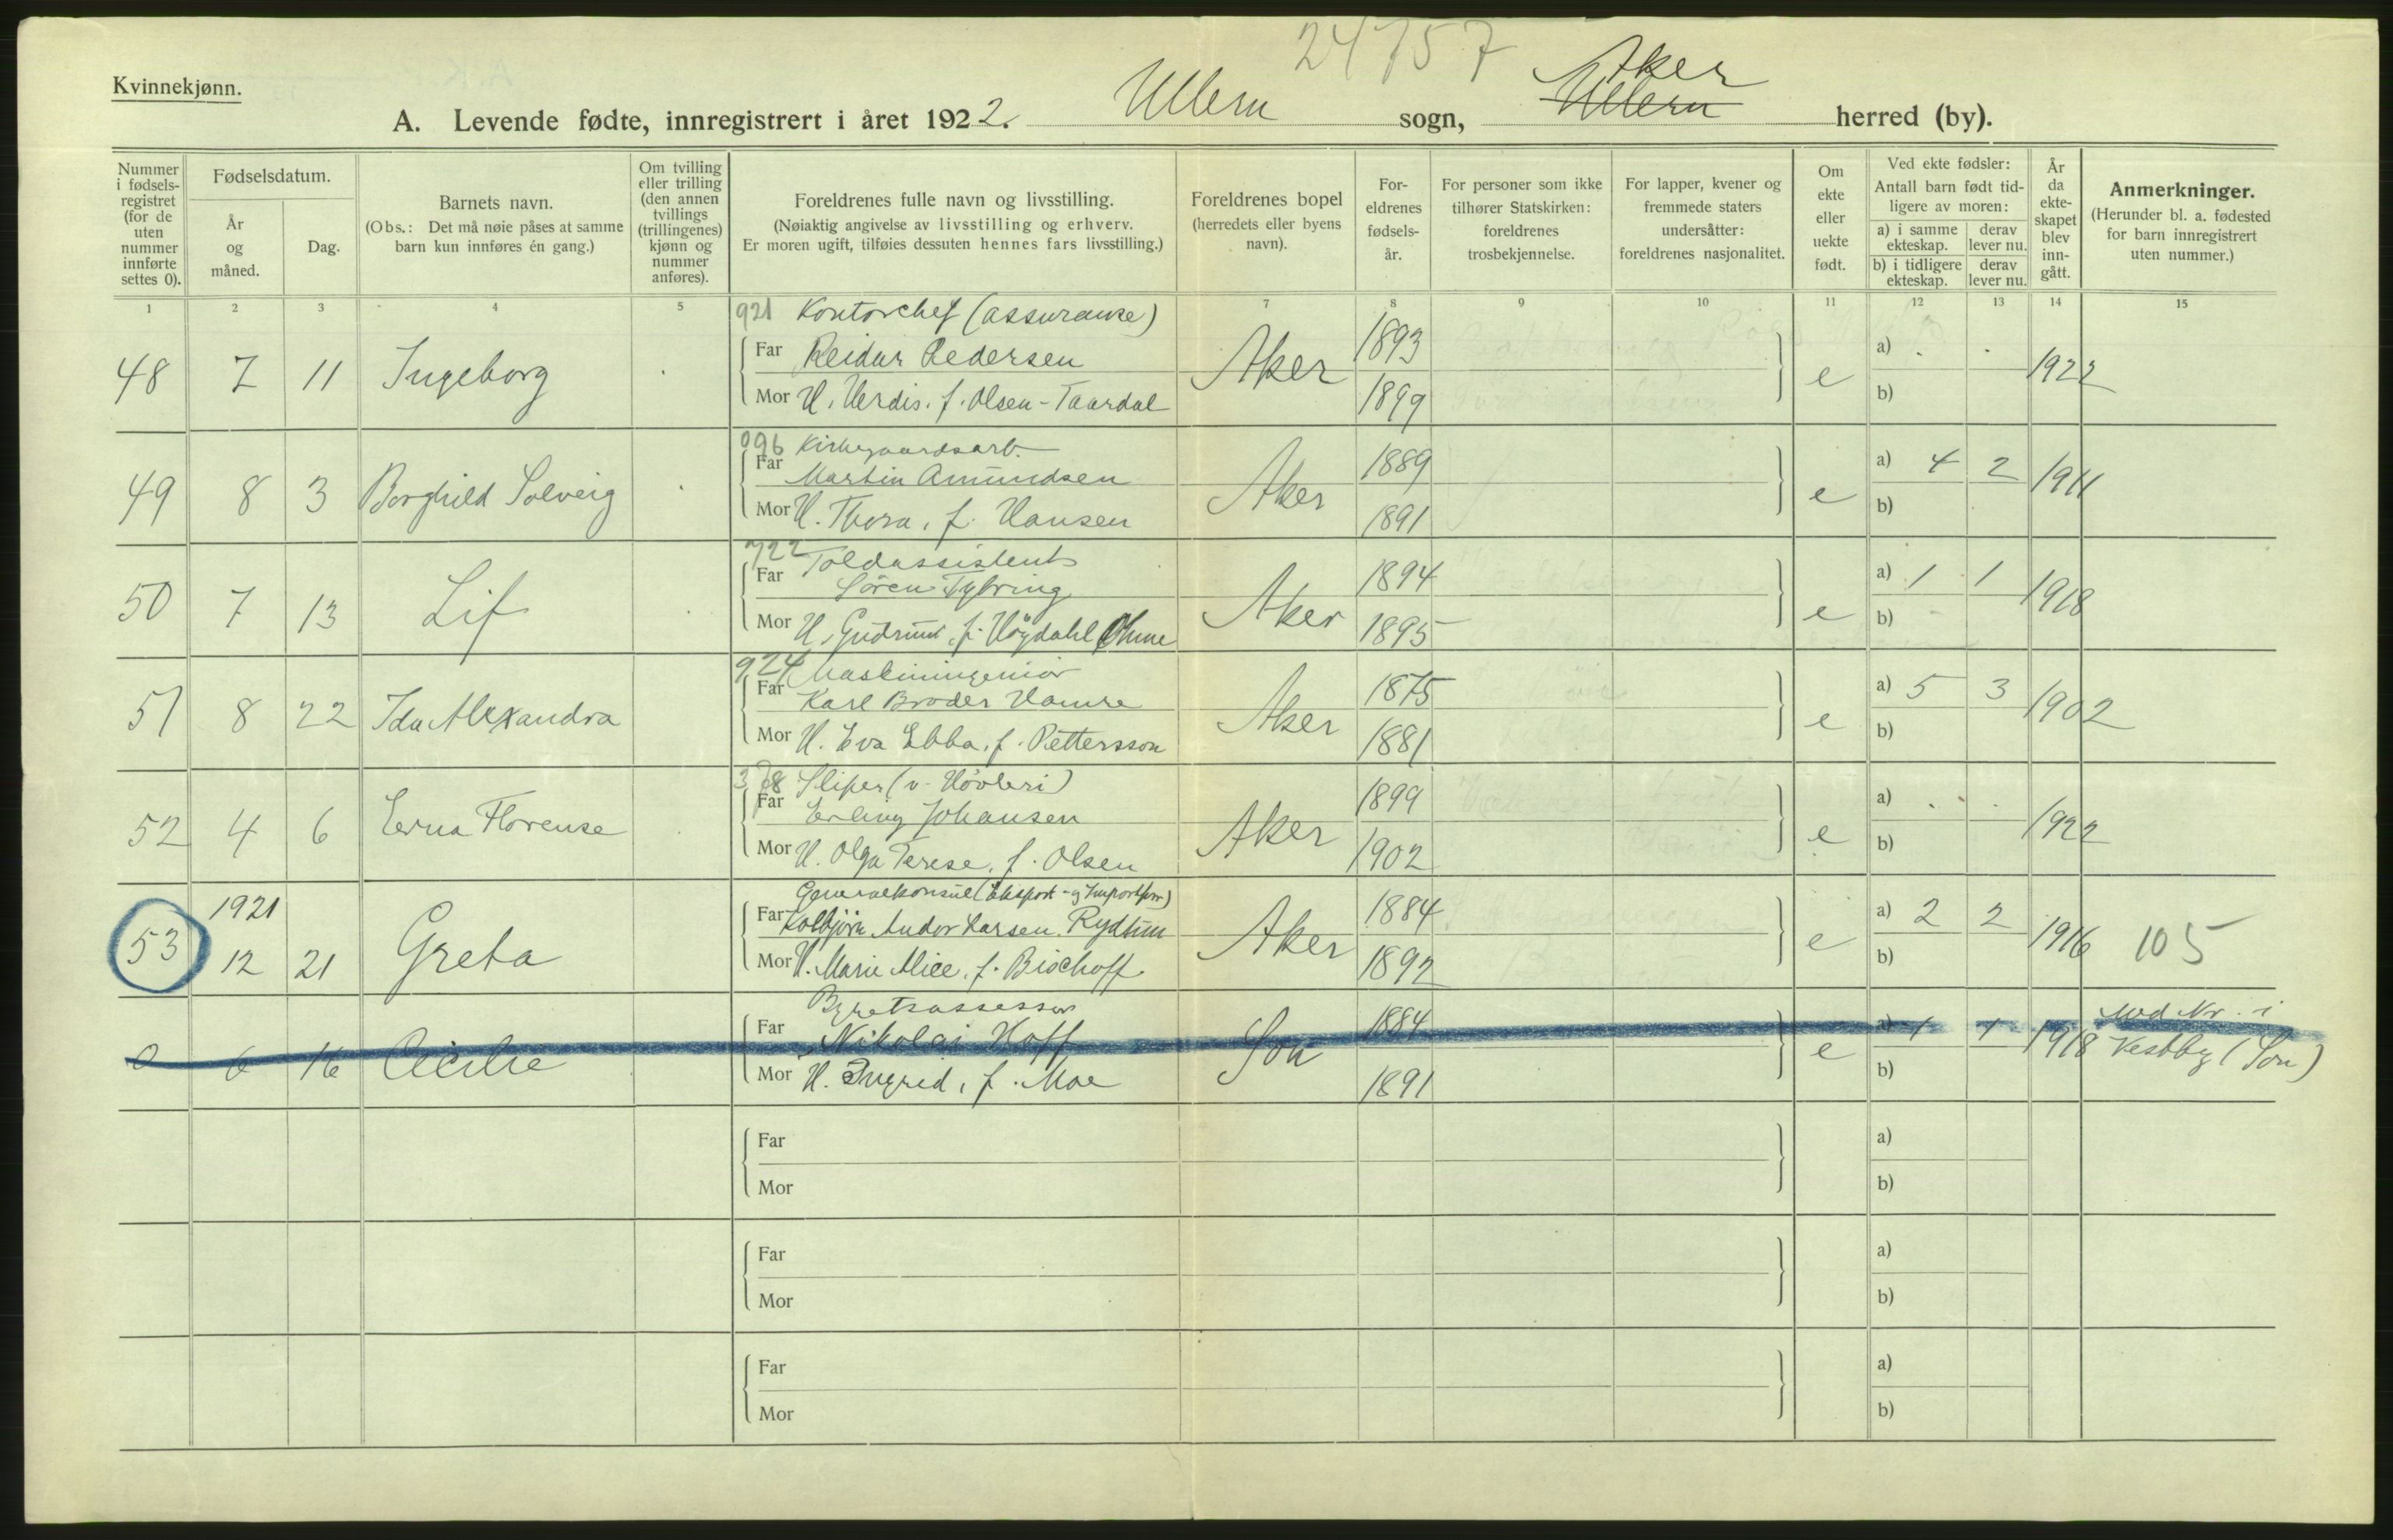 24757
Kvinnekjønn.
A. Levende fødte, innregistrert i året 1922. Ullern sogn, Ullern Aker herred (by).
Nummer i fødsels-registret (for de uten nummer innførte settes 0).
Fødselsdatum.
År og måned.
Dag.
Barnets navn.
(Obs.: Det må nøie påses at samme barn kun innføres én gang.)
Om tvilling eller trilling (den annen tvillings (trillingenes) kjønn og nummer anføres).
Foreldrenes fulle navn og livsstilling.
(Nøiaktig angivelse av livsstilling og erhverv.
Er moren ugift, tilføies dessuten hennes fars livsstilling.)
Foreldrenes bopel
(herredets eller byens navn).
For-eldrenes fødsels-år.
For personer som ikke tilhører Statskirken: foreldrenes trosbekjennelse.
For lapper, kvener og fremmede staters undersåtter: foreldrenes nasjonalitet.
Om ekte eller uekte født.
Ved ekte fødsler:
Antall barn født tid-ligere av moren:
a) i samme ekteskap. derav lever nu.
b) i tidligere ekteskap. derav lever nu.
År da ekte-skapet blev inn-gått.
Anmerkninger.
(Herunder bl. a. fødested for barn innregistrert uten nummer.)
1 2 3 4 5 7 8 9 10 11 12 13 14 15
921 Kontorchef (assuranse)
48 7 11 Ingeborg . Far Reidar Pedersen Aker 1893 e a) . . 1922
Mor H. Herdis. f. Olsen-Taardal 1899 b)
096 Kirkegaardsarb.
49 8 3 Borghild Solveig . Far Martin Amundsen Aker 1889 e a) 4 2 1911
Mor H. Thora, f. Hansen 1891 b)
722 Toldassistent
50 7 13 Lif . Far Sören Tybring Aker 1894 e a) 1 1 1918
Mor H. Gudrun, f. Högdahl Ohme 1895 b)
924 Maskiningeniör
51 8 22 Ida Alexandra Far Karl Broder Hamre Aker 1875 e a) 5 3 1902
Mor H. Eva Ebba, f. Pettersson 1881 b)
378 Sliper (v. Hövleri)
52 4 6 Erna Florense Far Erling Johansen Aker 1899 e a) . . 1922
Mor H. Olga Terese, f. Olsen 1902 b)
Generalkonsul (Eksport- og Importforr)
53 1921 12 21 Greta Far Kolbjörn Andor Larsen Rydtun Aker 1884 e a) 2 2 1916 105
Mor H. Marie Alice, f. Bischoff 1892 b)
Byretsassessor
0 6 16 Cecilie Far Nikolai Hoff Son 1884 e a) 1 1 1918 Med Nr. i Vestby (Son)
Mor H. Ingrid, f. Moe 1891 b)
Far a)
Mor b)
Far a)
Mor b)
Far a)
Mor b)